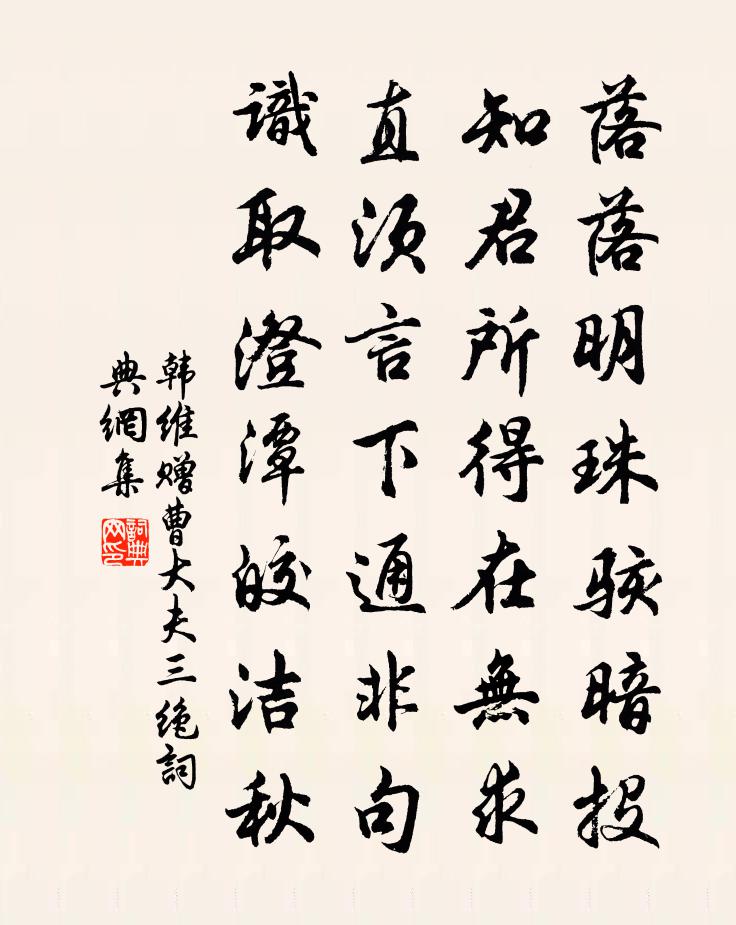 落落明珠駭暗投
知君所得在無求
直須言下通非句
識取澄潭皎洁秋
韩維赠曹大夫三绝詞
典網集
詞典
网印